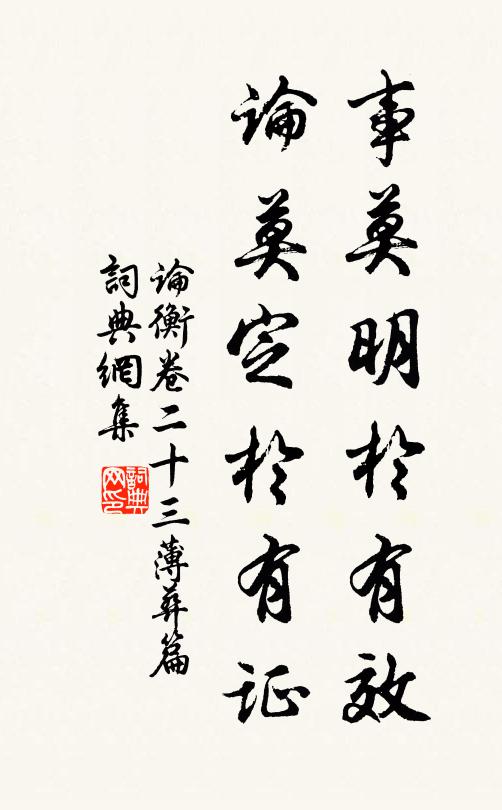 事莫明於有效
論莫定於有证
論衡卷二十三薄葬篇
詞典網集
詞典网印